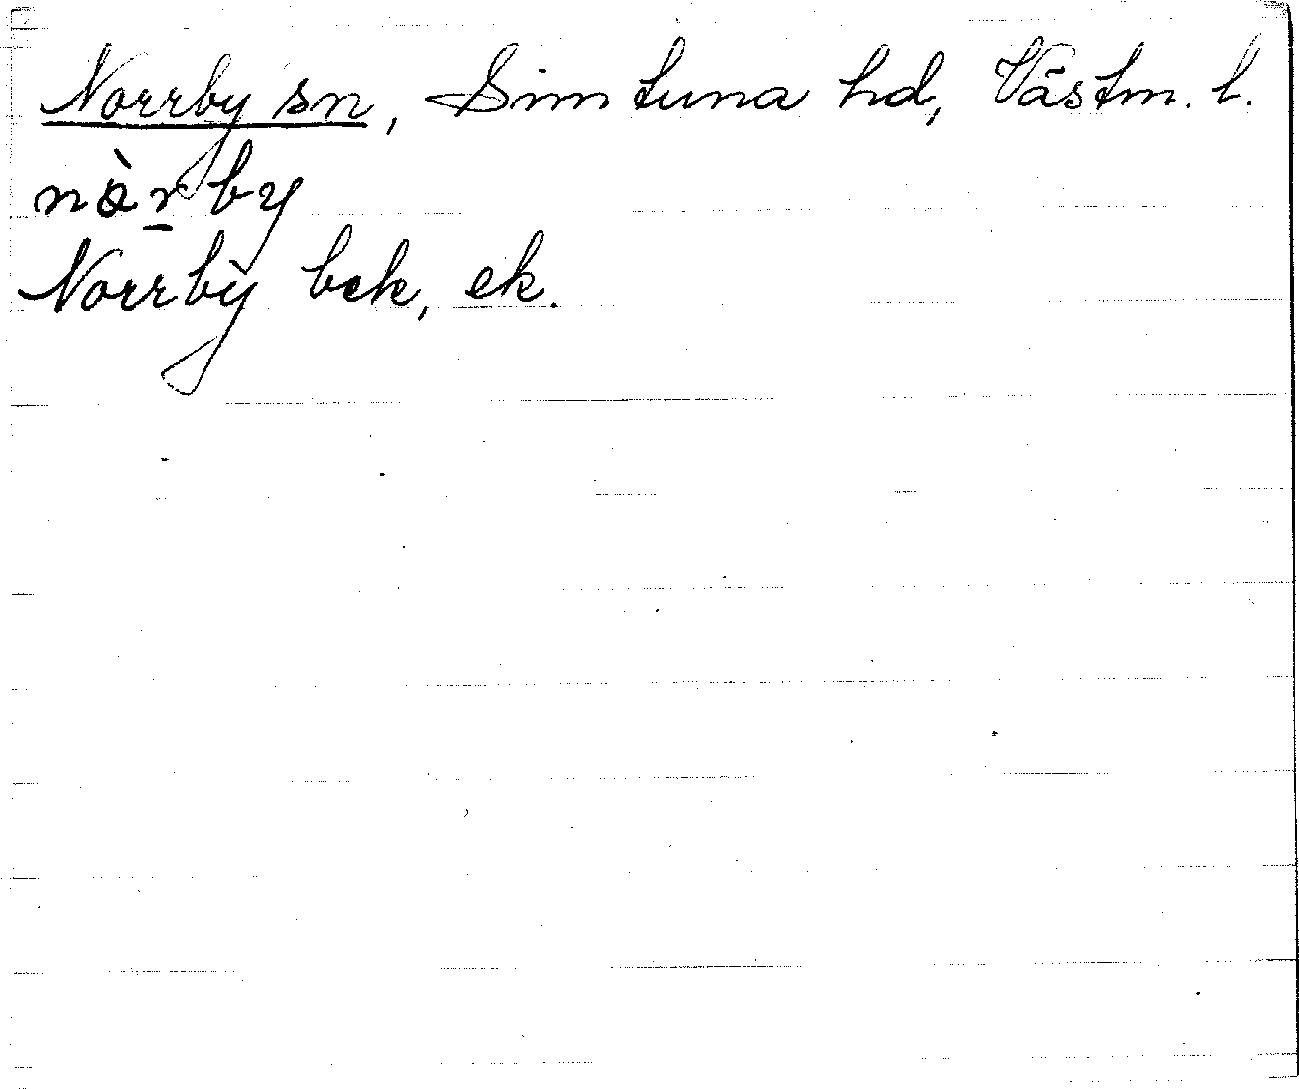 Norrby sn, Simtuna hd, Västm. l.
nàr̲by
Norrby bek, ek.